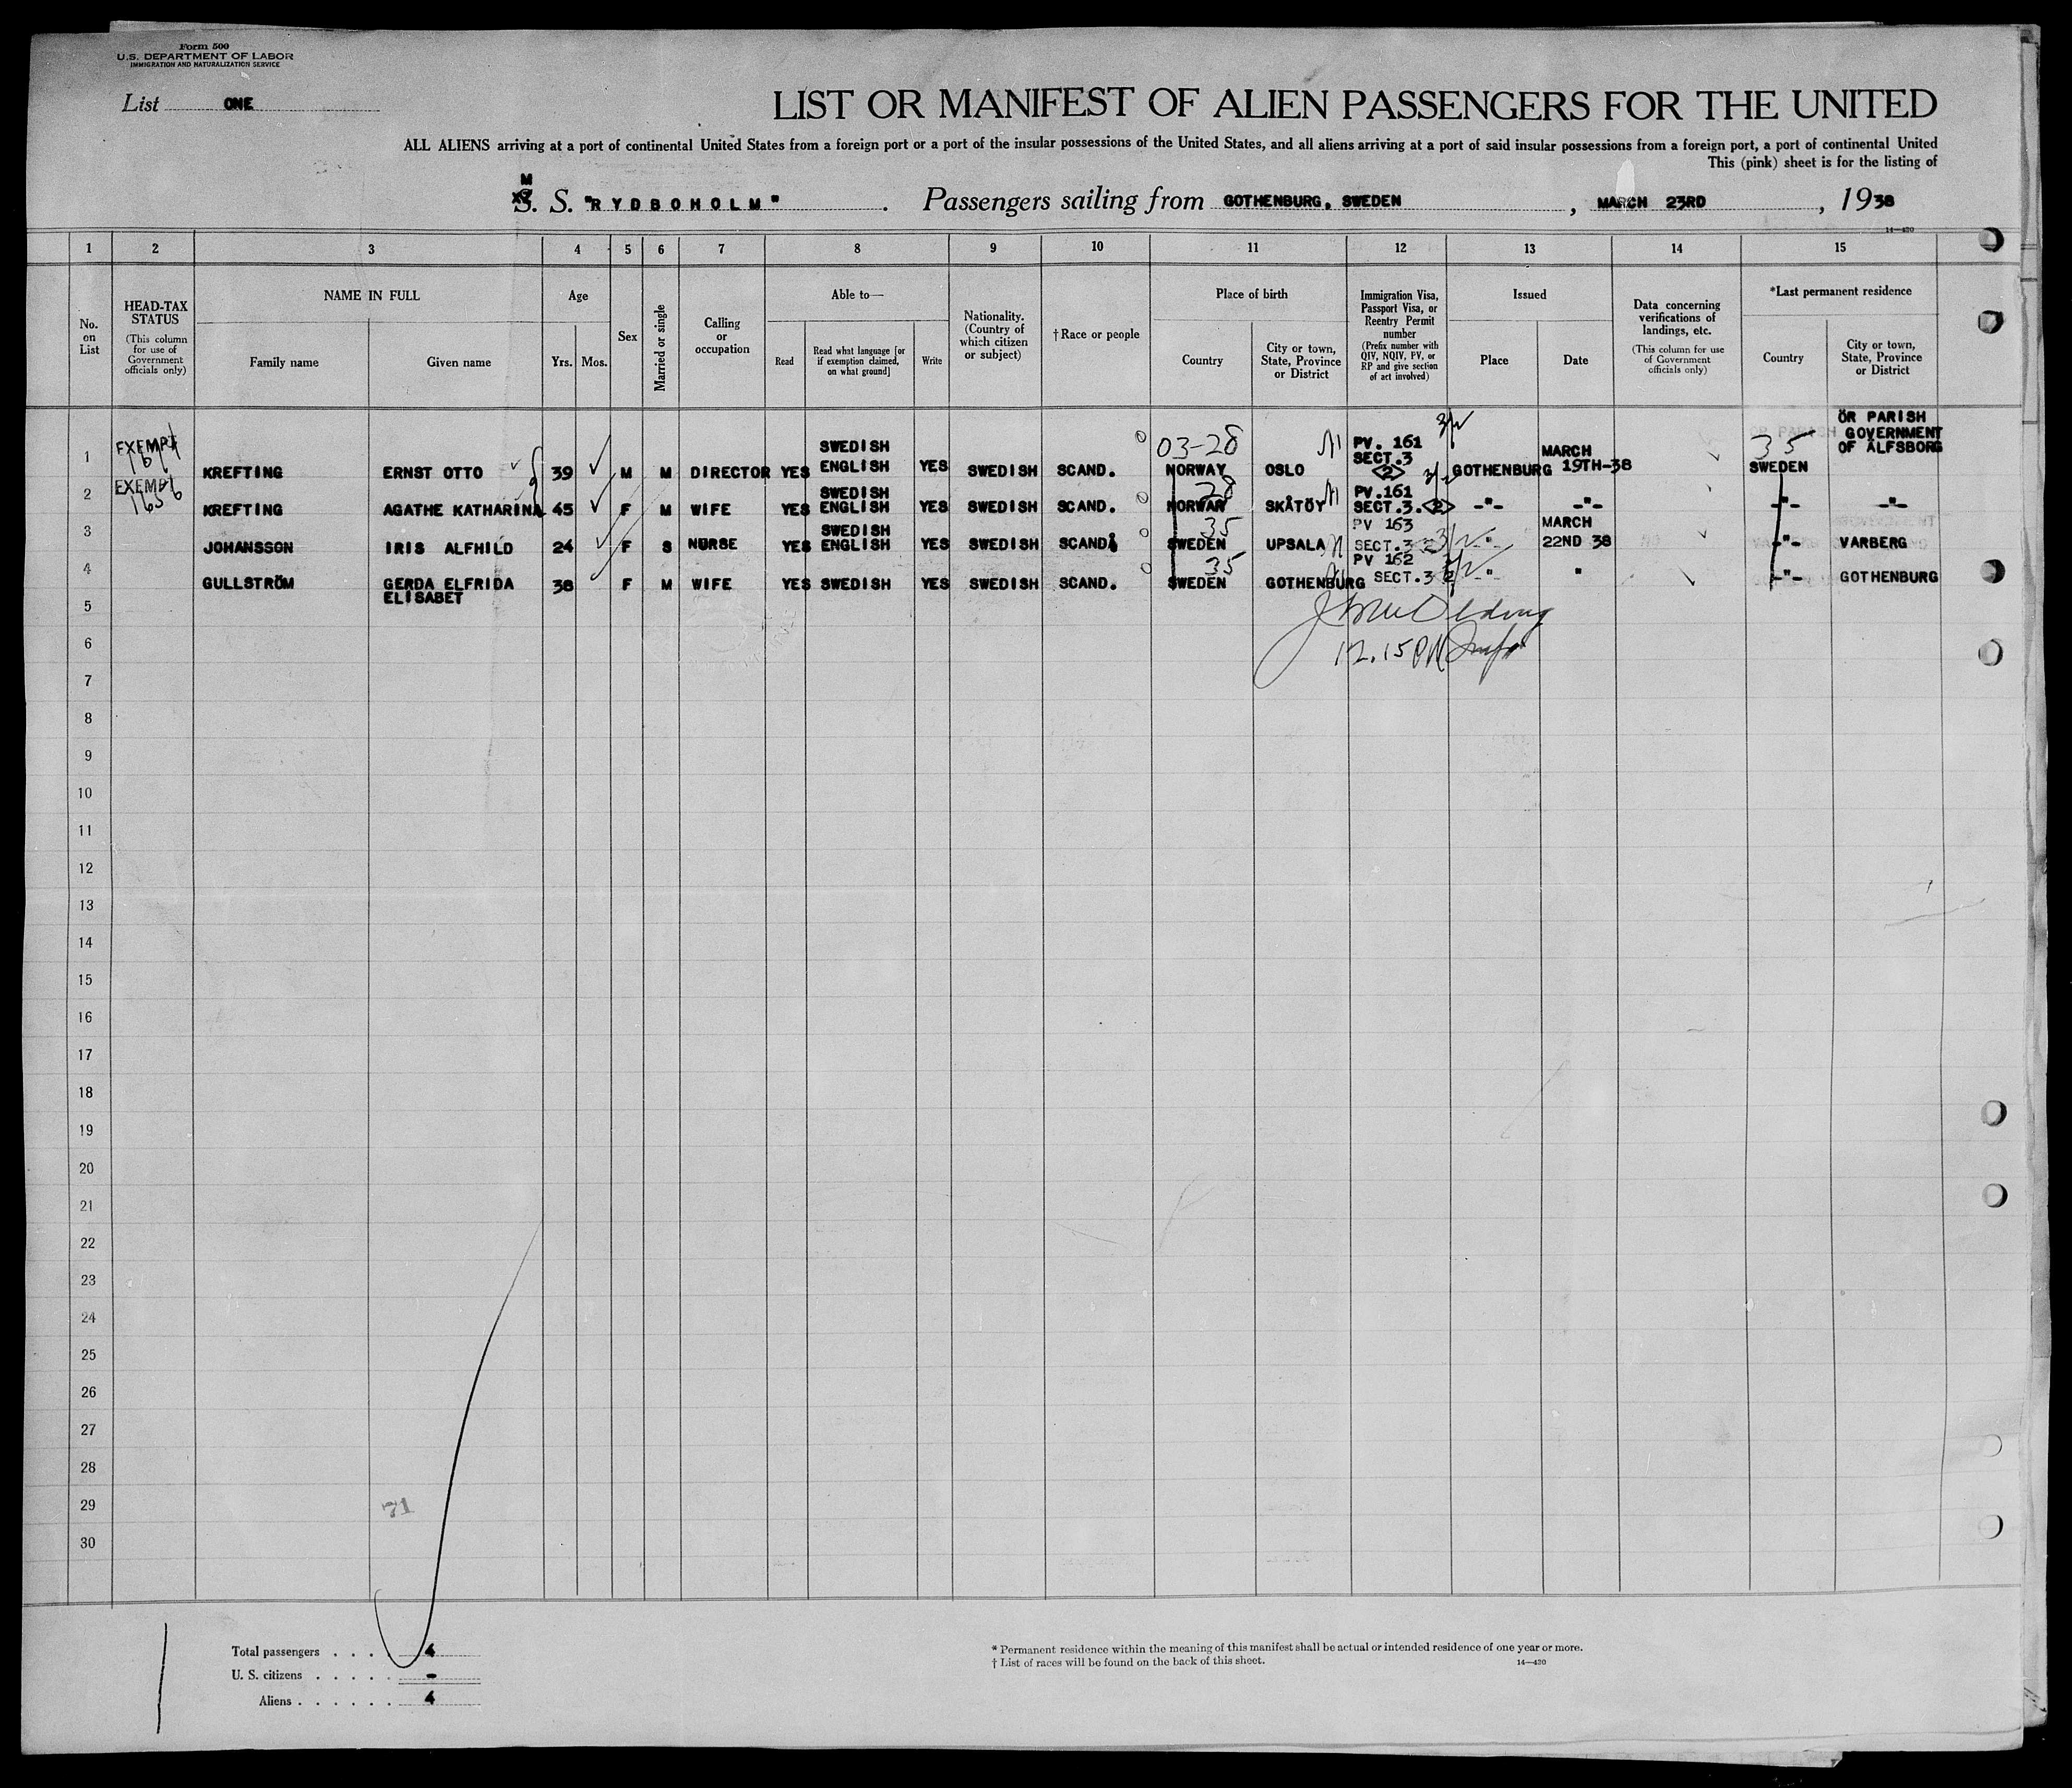 Form 500
U.S. DEPARTMENT OF LABOR
IMMIGRATION AND NATURALIZATION SERVICE
List ONE
LIST OR MANIFEST OF ALIEN PASSENGERS FOR THE UNITED
ALL ALIENS arriving at a port of continental United States from a foreign port or a port of the insular possessions of the United States, and all aliens arriving at a port of said insular possessions from a foreign port, a port of continental United
This (pink) sheet is for the listing of
M
S. S. "RYDBOHOLM". Passengers sailing from GOTHENBURG, SWEDEN, MARCH 23RD, 1938
14-430
1 2 3 4 5 6 7 8 9 10 11 12 13 14 15
No. on List
HEAD-TAX STATUS
(This column for use of Government officials only)
NAME IN FULL
Family name Given name
Age
Yrs. Mos.
Sex
Married or single
Calling or occupation
Able to—
Read
Read what language [or if exemption claimed, on what ground]
Write
Nationality. (Country of which citizen or subject)
†Race or people
Place of birth
Country
City or town, State, Province or District
Immigration Visa, Passport Visa, or Reentry Permit number
(Prefix number with QIV, NQIV, PV, or RP and give section of act involved)
Issued
Place Date
Data concerning verifications of landings, etc.
(This column for use of Government officials only)
*Last permanent residence
Country
City or town, State, Province or District
1 EXEMPT KREFTING ERNST OTTO 39 M M DIRECTOR YES SWEDISH ENGLISH YES SWEDISH SCAND. 03-28 NORWAY OSLO PV. 161 SECT.3 <2> GOTHENBURG MARCH 19TH-38 35 SWEDEN ÖR PARISH GOVERNMENT OF ÄLFSBORG
2 EXEMPT KREFTING AGATHE KATHARINA 45 F M WIFE YES SWEDISH ENGLISH YES SWEDISH SCAND. 28 NORWAY SKÅTÖY PV.161 SECT.3.<2> -"- -"- -"- -"-
3 JOHANSSON IRIS ALFHILD 24 F S NURSE YES SWEDISH ENGLISH YES SWEDISH SCAND. 35 SWEDEN UPSALA PV 163 SECT.3 2 -"- MARCH 22ND 38 -"- VARBERG
4 GULLSTRÖM GERDA ELFRIDA ELISABET 38 F M WIFE YES SWEDISH YES SWEDISH SCAND. 35 SWEDEN GOTHENBURG PV 162 SECT.3 2 " " -"- GOTHENBURG
5
6
12.15 PM
7
8
9
10
11
12
13
14
15
16
17
18
19
20
21
22
23
24
25
26
27
28
29
71
30
Total passengers . . . . 4
U. S. citizens . . . . . . -
Aliens . . . . . . . 4
* Permanent residence within the meaning of this manifest shall be actual or intended residence of one year or more.
† List of races will be found on the back of this sheet.
14-430